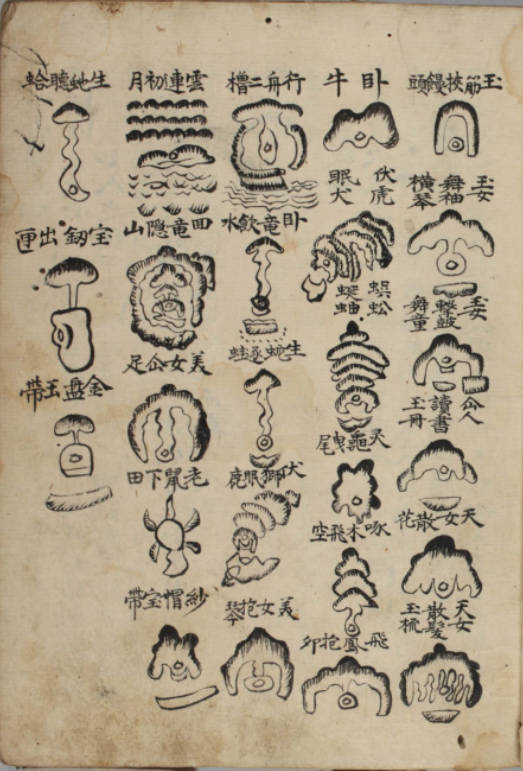 玉筋挾饅頭
玉女
舞袖
橫琴
玉女
擊鼓
舞童
仚人
讀書
玉冊
天女散花
天女
散髮
玉梳
卧牛
伏虎
眠犬
蜈蚣
蜒蚰
天龜曳尾
啄木飛空
飛鳳抱卵
行舟二櫓
卧竜飮水
生蛇逐蛙
伏獅眼鹿
美女抱琴
雲連初月
四竜隠山
美女仚足
老鼠下田
紗帽宝帶
生虵聽蛤
宝釼出匣
金盤玉帶